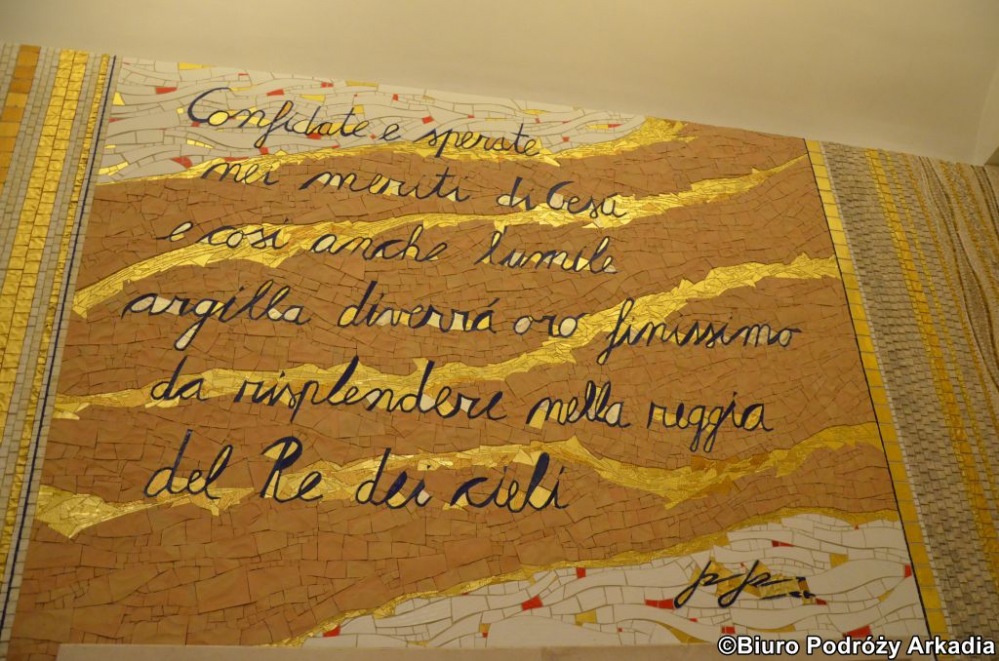 Confidate e sperate
nei meriti di Gesù
e così anche l'umile
argilla diverrá oro finissimo
da risplendere nella reggia
del Re dei cieli
©Biuro Podróży Arkadia